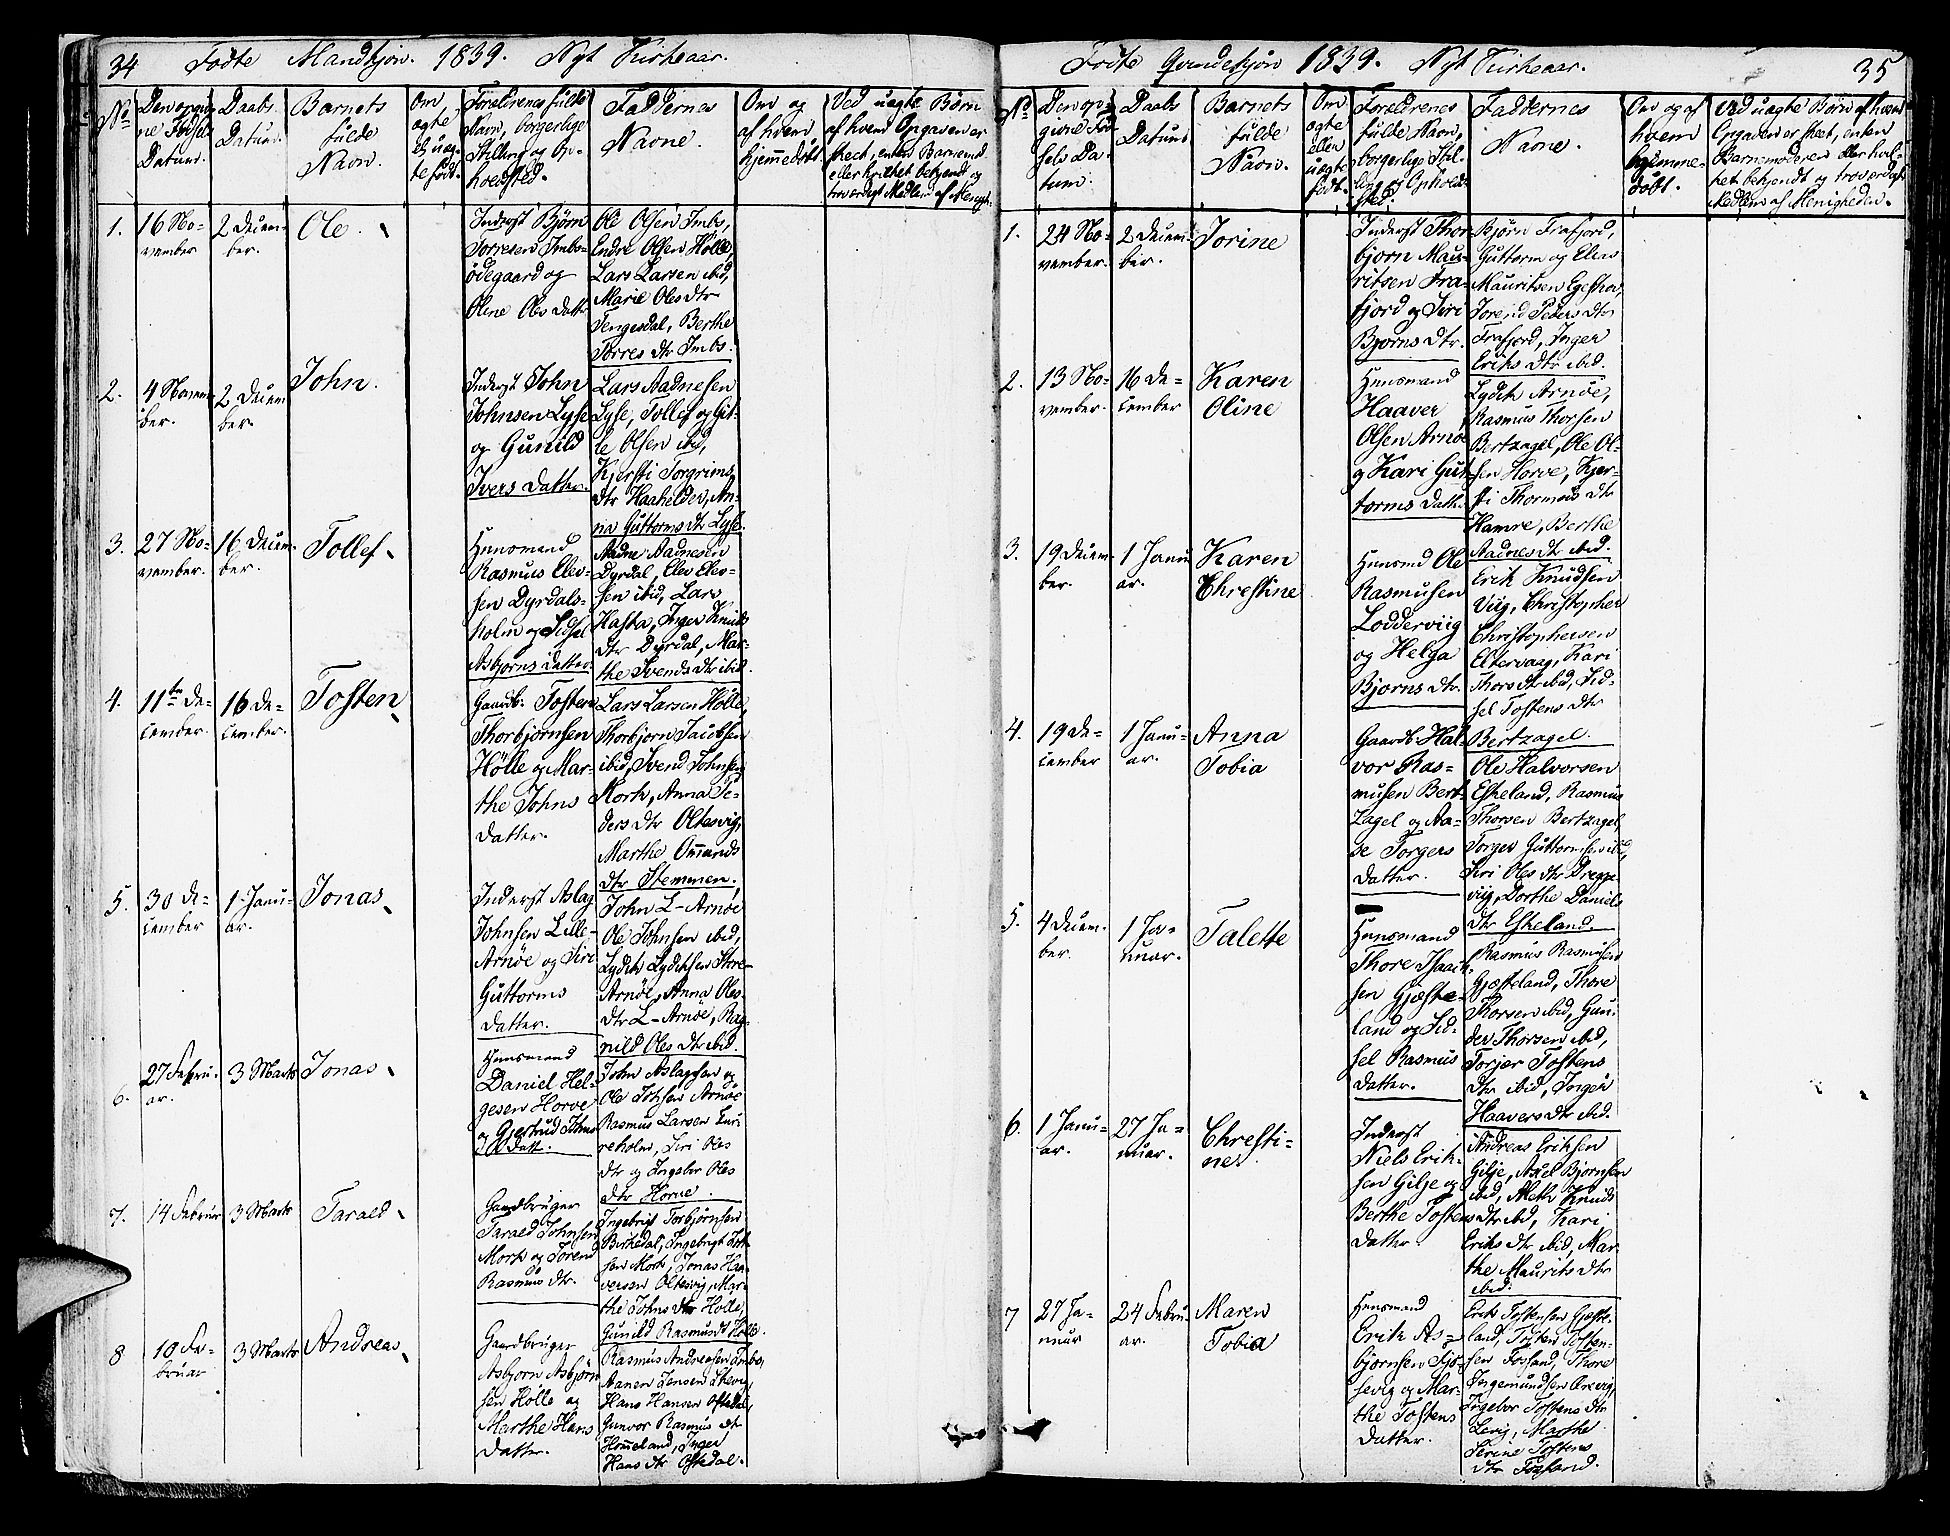 34 Fødte Mandkjøn. 1839. Nyt Kirkeaar.
No
Den opgiv-
ne Fødsels
Datum.
Daabs
Datum.
Barnets
fulde
Navn.
Om
ægte
ell. uæg-
te født.
Forældrenes fulde
Navn, borgerlige
Stilling og Op-
holdsted.
Faddernes
Navne.
Om og
af hvem
hjemmedøbt
Ved uægte Børn
af hvem Opgaven er
skeet, enten Barnemod.
eller hvilket bekjendt og
troværdigt Medlem af Menigh.
1.
16 No-
vember
2 Decem-
ber.
Ole.
Inderst Bjørn
Torresen Imbs-
ødegaard og
Oline Oles Datter
Ole Olsen Imbs,
Endre Olsen Hølle,
Lars Larsen ibid,
Marie Oles dtr
Tengesdal, Berthe
Torres dtr Imbs.
2.
4 Novem-
ber.
2 Decem-
ber.
John.
Inderst John
Johnsen Lyse
og Gunild
Ivers Datter.
Lars Aadnesen
Lyse, Tollef og Git-
le Olsen ibid,
Kjersti Torgrims
dtr Haahelder, An-
na Guttorms dtr Lyse.
3.
27 No-
vember.
16 Decem-
ber.
Tollef
Huusmand
Rasmus Elev-
sen Dyrdals-
holm og Sidsel
Asbjørns Datter.
Aadne Aadnesen
Dyrdal, Elev Elev-
sen ibid, Lars
Hasta, Inger Knuds
dtr Dyrdal, Mar-
the Svends dtr ibid.
4.
11te De-
cember.
16 De-
cember.
Tosten
Gaardb. Tosten
Thorbjørnsen
Hölle og Mar-
the Johns
Datter.
Lars Larsen Hölle,
Thorbjørn Jacobsen
ibid, Svend Johnsen
Mork, Anna Pe-
ders dtr Oltesvig,
Marthe Ommunds
dtr Stemmen.
5.
30 De-
cember
1 Janu-
ar.
Jonas
Inderst Aslag
Johnsen Lille-
Arnøe og Siri
Guttorms
Datter.
John L-Arnøe
Ole Johnsen ibid,
Lydik Lydiksen Store-
Arnøe, Anna Oles
dtr L-Arnøe, Rag-
nild Oles dtr ibid.
6.
27 Febru-
ar.
3 Marts
Jonas
Huusmand
Daniel Hel-
gesen Horve
og Gjertrud Johns
Datt.
John Aslagsen og
Ole Johnsen Arnøe
Rasmus Larsen
Siri Oles
dtr og Ingebor Oles
dtr Horve.
7.
14 Februar
3 Marts
Tarald
Gaardbruger
Tarald Johnsen
Mork og Torend
Rasmus dtr.
Ingebrigt Torbjørnsen
Birkedal, Ingebrigt
sen Mork, Jonas Haa-
versen Oltesvig, Mar-
the Johns dtr Hølle,
Gunild Rasmusdt Hölle.
8
10 Fe-
bruar
3 Marts
Andreas
Gaardbruger
Asbjørn Asbjørn-
sen Hölle og
Marthe Hans
Datter.
Rasmus Andreasen Imbs,
Aanen Jensen
Hans Hansen Oftedal,
Gunvor Rasmus dtr
Hommeland, Inger
Hans dtr Oftedal.
Fødte Qvindekjøn 1839. Nyt Kirkeaar.
35
No
Den op-
givne Fød-
sels Da-
tum.
Daabs
Datum.
Barnets
fulde
Navn.
Om
ægte
eller
uægte
født.
Forældrenes
fulde Navn,
borgerlige Stil-
ling og Opholds-
sted.
Faddernes
Navne.
Om og af
hvem
hjemme-
døbt.
Ved uægte Børn af hvem
Opgaven er skeet, enten
Barnemoderen eller hvil-
ket bekjendt og troværdigt
Medlem af Menigheden.
1.
24 No-
vember.
2 Decem-
ber.
Torine
Inderst Thor-
bjørn Mau-
ritsen Fra-
fjord og Siri
Bjørns dtr.
Bjørn Frafjord,
Guttorm og Elias
Mauritsen Egeskov,
Torend Peders dtr
Frafjord, Inger
Eriks dtr ibid.
2.
13 No-
vember.
16 De-
cember
Karen
Oline
Huusmand
Haaver
Olsen Arnøe
og Kari Gut-
torms Datt.
Lydik Arnøe,
Rasmus Thorsen
Bertzagel, Ole Ol-
sen Horve, Kjer-
sti Thormus dtr
Hamre, Berthe
Aadnes dtr ibid.
3.
19 Decem-
ber.
1 Janu-
ar.
Karen
Chrestine
Huusmd Ole
Rasmusen
Loddervig
og Helga
Bjørns dtr.
Erik Knudsen
Viig, Christopher
Christophersen
Eltervaag, Kari
Thors dtr ibid, Sid-
sel Tostens dtr
Bertzagel.
4.
19 De-
cember
1 Janu-
ar.
Anna
Tobia
Gaardb. Hal-
vor Ras-
musen Bert-
zagel og Aa-
se Torgers
Datter.
Ole Halvorsen
Eskeland, Rasmus
Thorsen Bertzagel,
Torger Guttormsen ibid,
Siri Oles dtr Dreggje-
viig, Dorthe Daniels
dtr Eskeland.
5.
4 Decem-
ber.
1 Ja-
nuar.
Talette
Huusmand
Thore Isaach-
sen Gjeste-
land og Sid-
sel Rasmus
Datter.
Rasmus Rasmusen
Gjesteland, Thore
Thorsen ibid, Gun-
der Thorsen ibid,
Torjer Tostens
dtr ibid, Inger
Haavers dtr ibid.
6.
1 Janu-
ar.
27 Ja-
nuar.
Chresti-
ne.
Inderst
Niels Erik-
sen Gilje og
Berthe Tostens
Datter
Andreas Eriksen
Gilje, Axel Bjørnsen
ibid, Meth Knuds
dtr ibid, Kari
Eriks dtr ibid, Mar-
the Maurits dtr
ibid.
7
27 Ja-
nuar
24 Febru-
ar.
Maren
Tobia
Huusmand
Erik As-
bjørnsen
sevig og Mar-
the Tostens
Datter.
Erik Tostensen Gjeste-
land, Tosten Tosten-
sen Fosland, Thore
Ingemundsen
Ingebor Tostens dtr
Marthe
Serine Tostens
dtr Fosland.